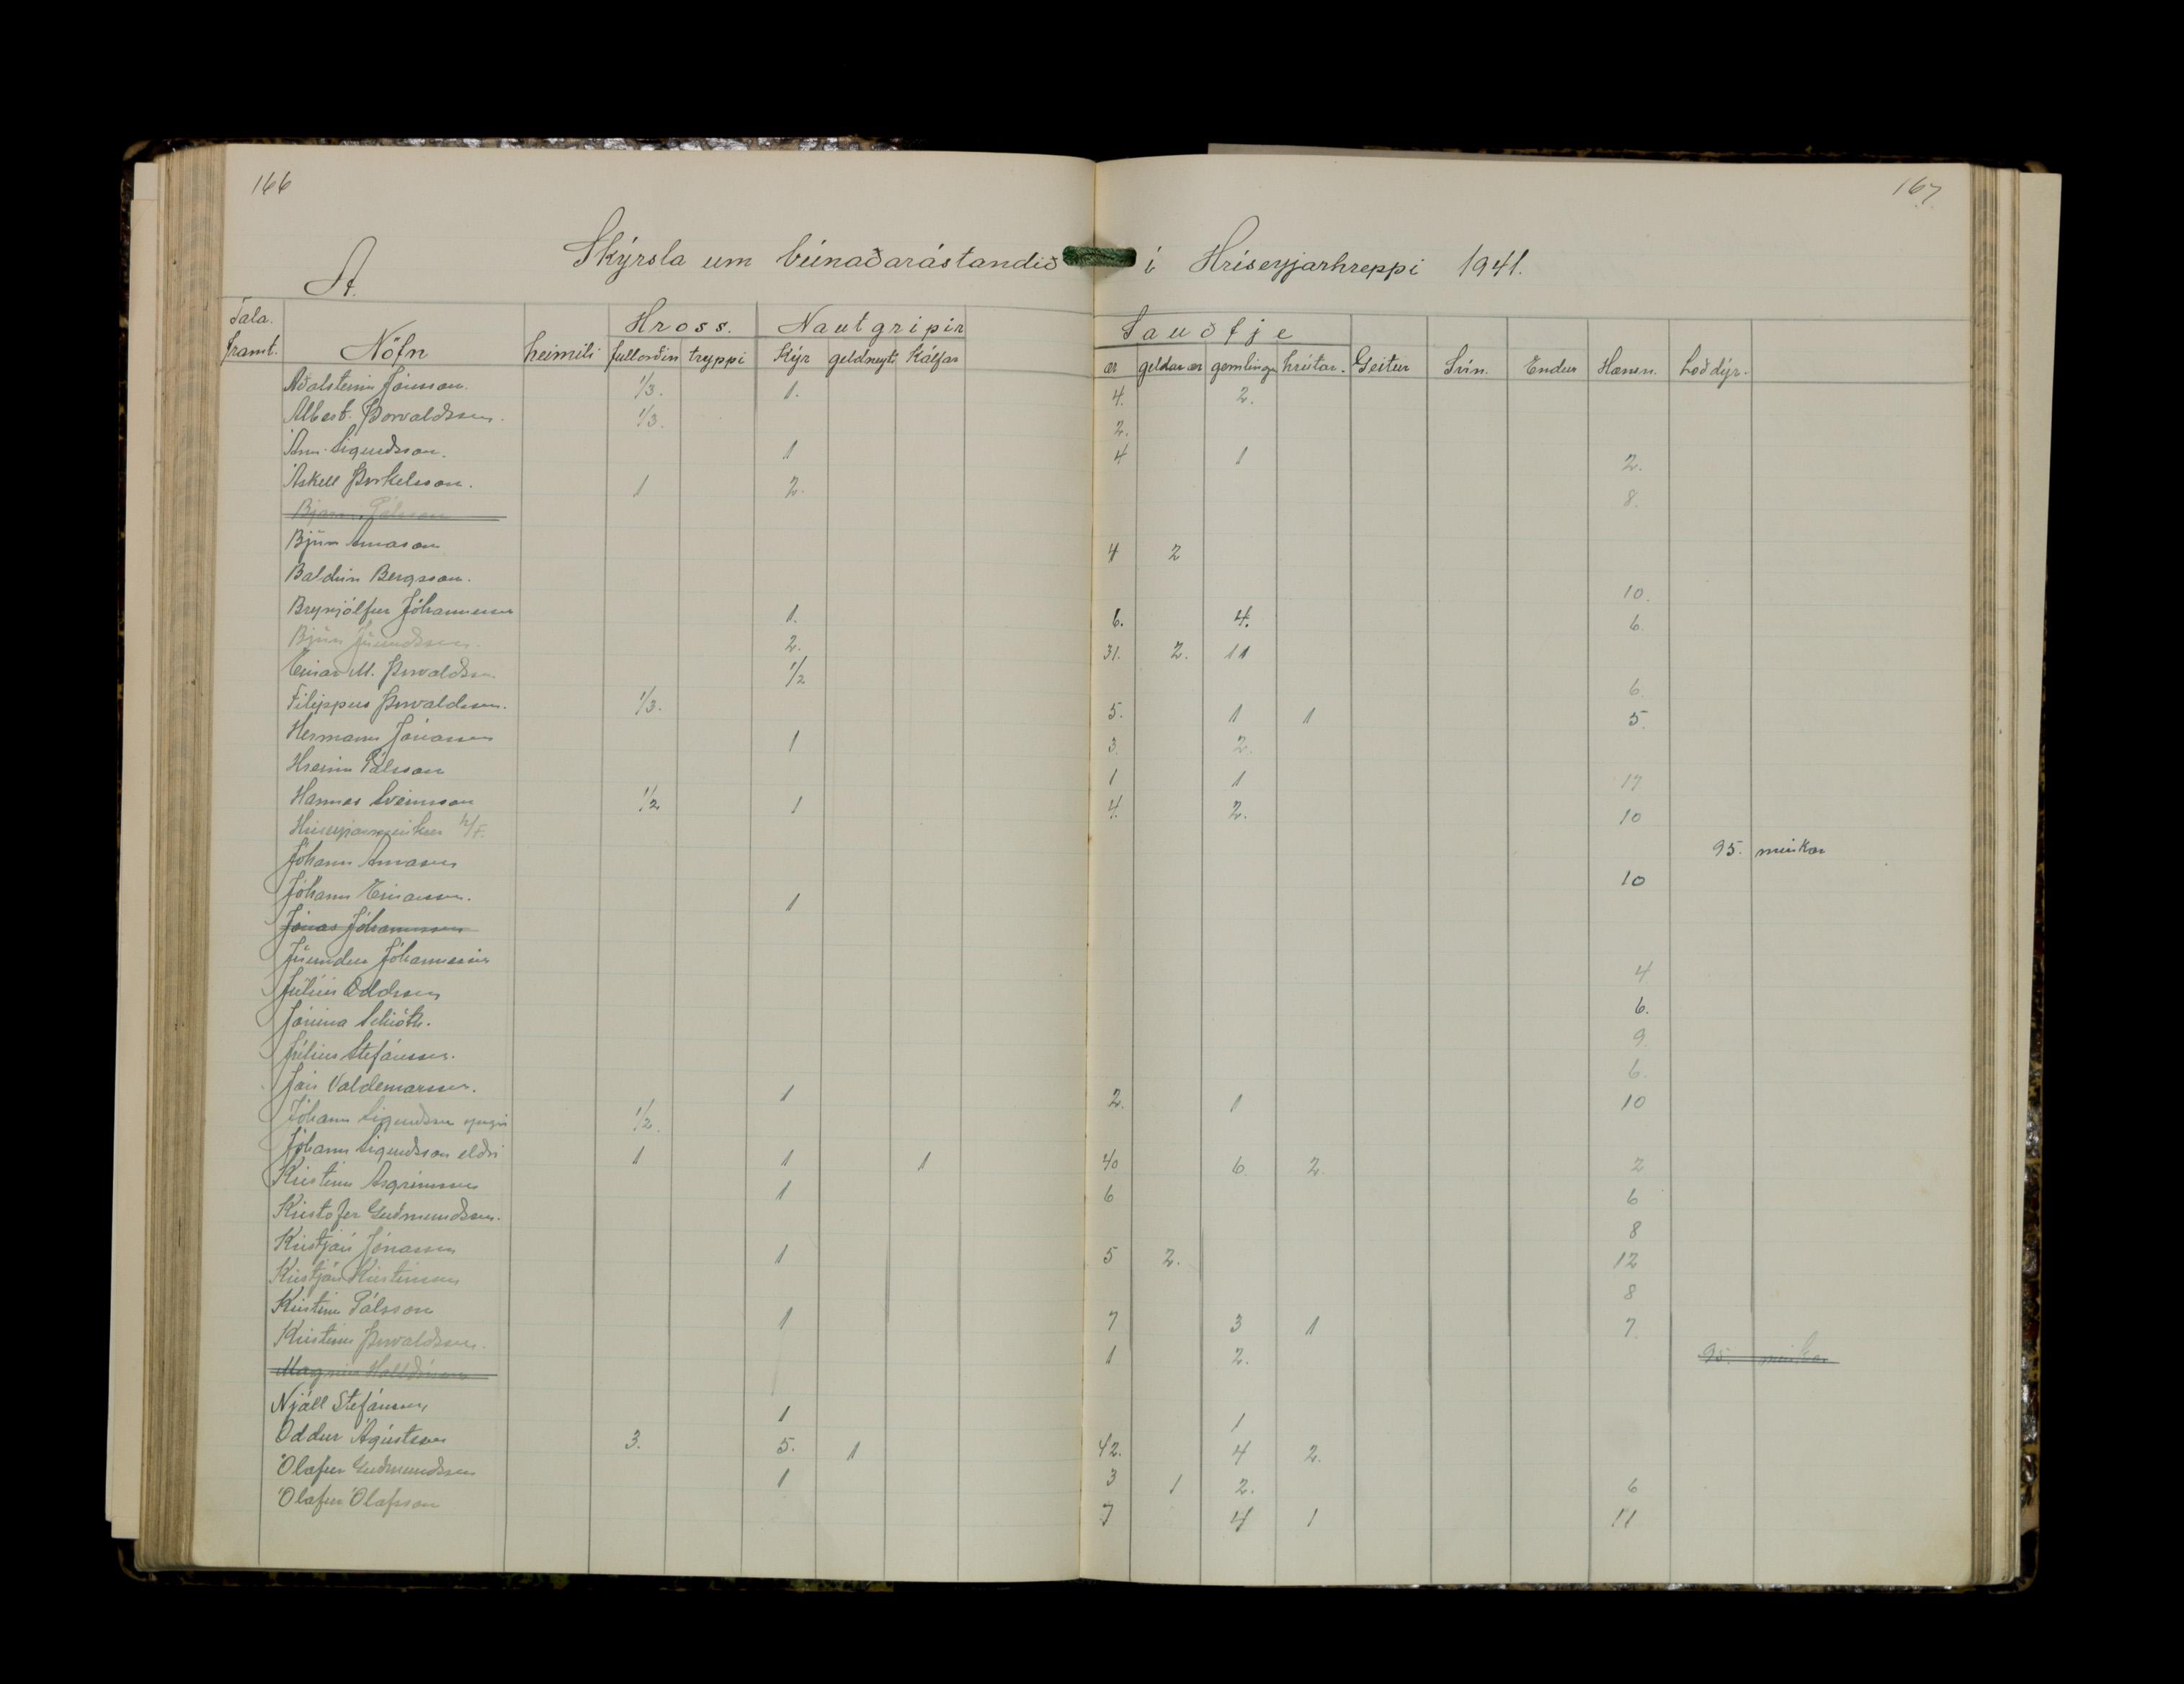 166
167
A.
Skýrsla um búnaðarástandið í Hríseyjarhreppi 1941.
Tala framt. Nöfn heimili Hross. fullorðin tryppi Nautgripir Kýr geldneyti Kálfar Sauðfje ær geldar ær gemlingar hrútar. Geitur Svín. Endur Hænsn. Loðdýr.
Aðalsteinn Jónsson. 1/3. 1. 4. 2.
Albert Þorvaldsson. 1/3. 2.
Árni Sigurðsson. 1 4 1 2.
Áskell Þorkelsson. 1 2. 8.
Bjarni Pálsson
Björn Árnason 4 2
Baldvin Bergsson. 10.
Brynjólfur Jóhannesson 1. 6. 4. 6.
Björn Jörundsson. 2. 31. 2. 11
Einar M. Þorvaldsson 1/2 6.
Filippus Þorvaldsson. 1/3. 5. 1 1 5.
Hermann Jónasson 1 3. 2.
Hreinn Pálsson 1 1 17
Hannes Sveinsson 1/2 1 4. 2. 10
h/f. 95. minkar
Jóhann Árnason 10
Jóhann Einarsson. 1
Jónas Jóhannsson
Jörundur Jóhannesson 4
Júlíus Oddsson 6.
Jónína Schiöth. 9.
Júlíus Stefánsson. 6.
Jón Valdemarsson. 1 2. 1 10
Jóhann Sigurðsson yngri 1/2.
Jóhann Sigurðsson eldri 1 1 1 40 6. 2. 2
Kristinn Ásgrímsson 1 6 6
Kristofer Guðmundsson. 8
Kristján Jónasson 1 5 2. 12
Kristján Kristinsson 8
Kristinn Pálsson 1 7 3 1 7.
Kristinn Þorvaldsson. 1 2. 95. minkar
Magnús
Njáll Stefánsson 1 1
Oddur Ágústsson 3. 5. 1 42. 4 2.
Ólafur Guðmundsson 1 3 1 2. 6
Ólafur Ólafsson 7 4 1 11